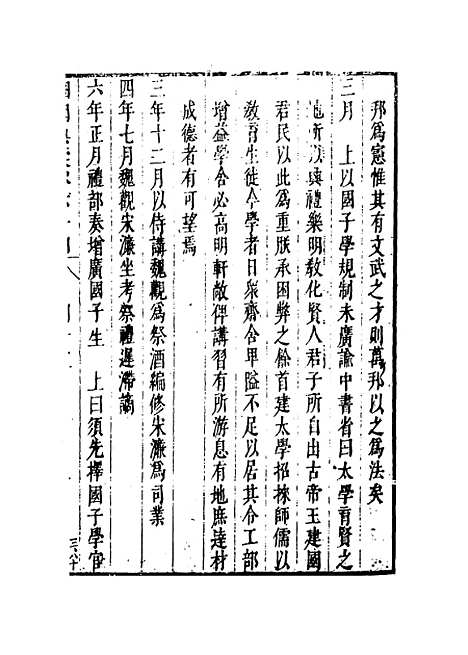 邦爲憲惟其有文武之才則萬邦以之爲法矣
三月　上以國子學規制未廣諭中書省曰太學育賢之
地所以興禮樂明敎化賢人君子所自出古帝王建國
君民以此爲重朕承困弊之餘首建太學招揀師儒以
敎育生徒今學者日衆齋舍卑隘不足以居其令工部
增益學舍必高明軒敞俾講習有所游息有地庶達材
成德者有可望焉
三年十二月以侍講魏觀爲祭酒編修宋濂爲司業
四年七月魏觀宋濂坐考祭禮遲滯謫
六年正月禮部奏增廣國子生　上曰須先擇國子學官